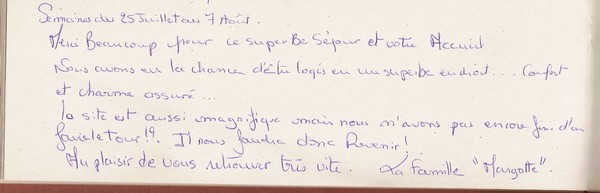 Semaines du 25 Juillet au 7 Août.
Merci Beaucoup pour ce superBe Séjour et votre Accueil
Nous avons eu la chance d'être logés en un superbe endroit... Confort
et charme assuré...
Le site est aussi magnifique mais nous n'avons pas encore fini d'en
faire le tour!!! Il nous faudra donc Revenir!
Au plaisir de vous retrouver très vite. La Famille "Margotte".